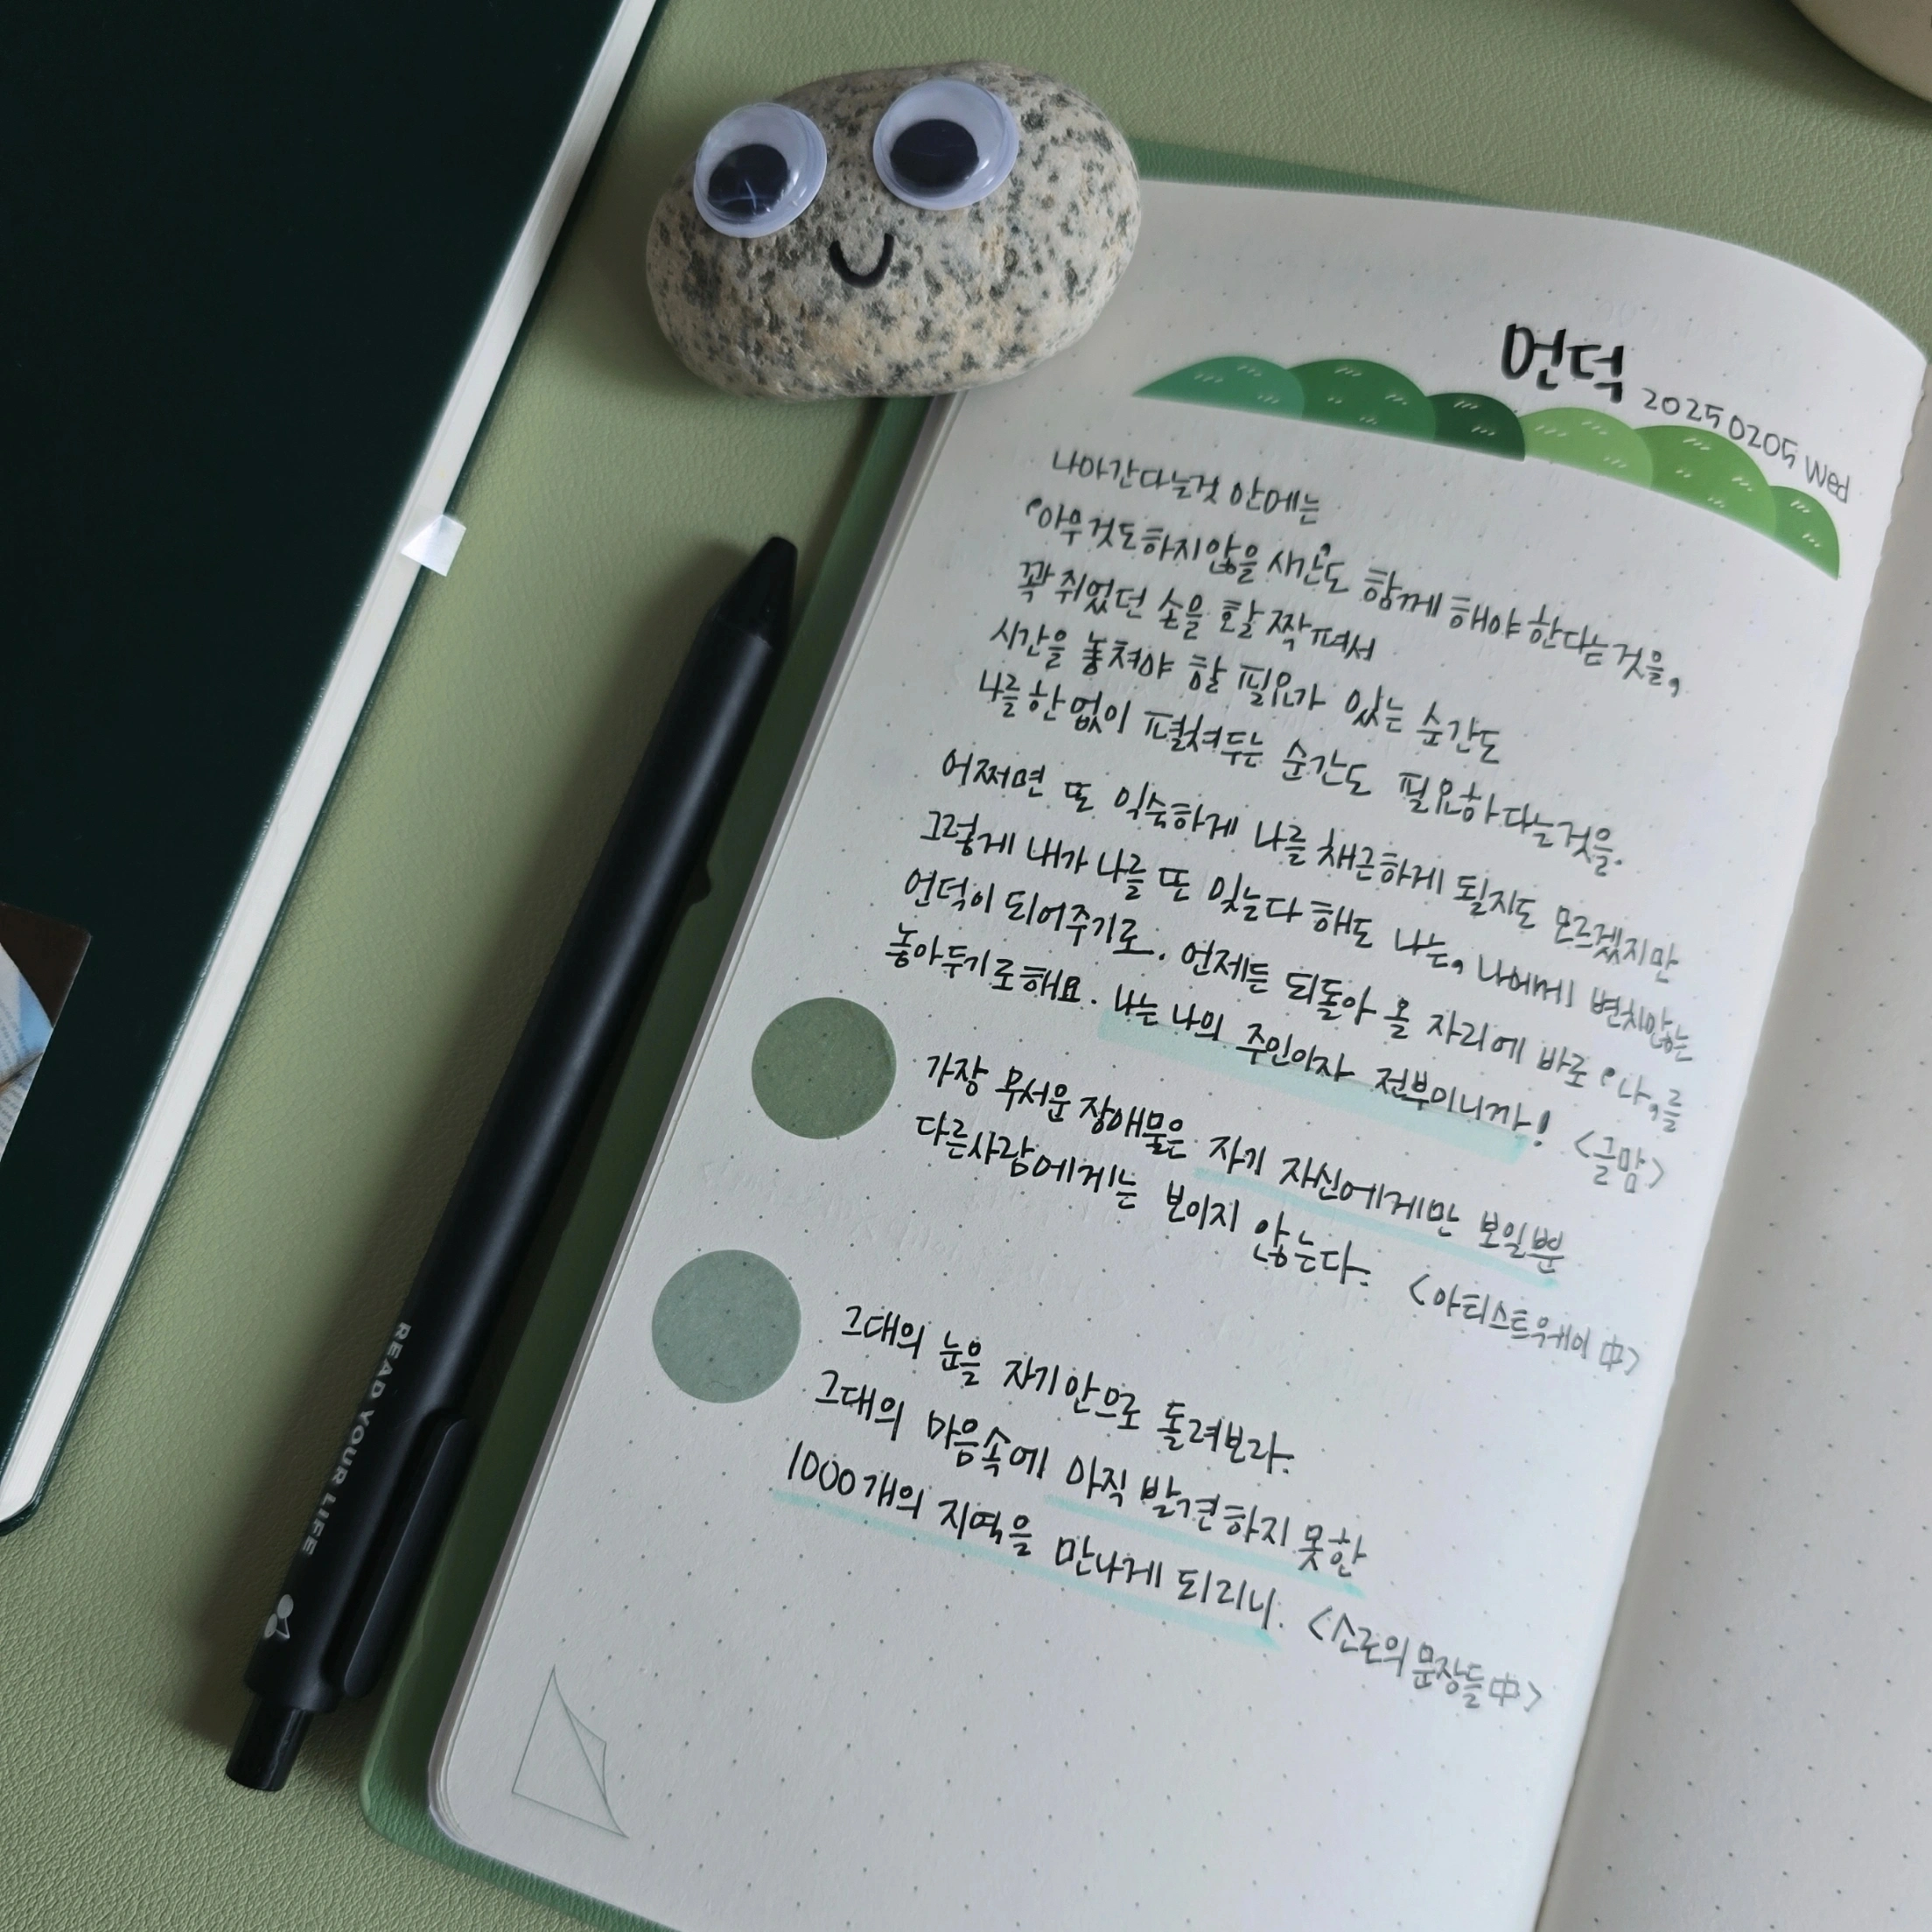 언덕
20250205 Wed
나아간다는것 안에는
'아무것도하지않을 새간'도 함께 해야 한다는 것을,
꽉 쥐었던 손을 활짝 펴서
시간을 놓쳐야 할 필요가 있는 순간도
나를 한없이 펼쳐두는 순간도 필요하다는것을.
어쩌면 또 익숙하게 나를 채근하게 될지도 모르겠지만
그렇게 내가 나를 또 잊는다 해도 나는, 나에게 변치않는
언덕이 되어주기로. 언제든 되돌아 올 자리에 바로 '나'를
놓아두기로해요. 나는 나의 주인이자 전부이니까! <글맘>
가장 무서운 장애물은 자기 자신에게만 보일뿐
다른사람에게는 보이지 않는다. <아티스트웨이 中>
그대의 눈을 자기안으로 돌려보라.
그대의 마음속에 아직 발견하지 못한
1000개의 지역을 만나게 되리니. <소로의 문장들 中>
READ YOUR LIFE